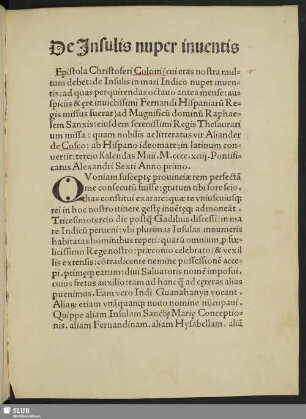 De Insulis nuper inuentis
Epistola Christoferi Colom (cui etas nostra mul
tum debet: de Insulis in mari Indico nuper inuen
tis: ad quas perquirendas octauo antea mense: au⸗
spiciis & ęre inuictissimi Fernandi Hispaniarū Re
gis missus fuerat) ad Magnificū dominū Raphae⸗
lem Sanxis: eiusdem serenissimi Regis Thesaurari
um missa: quam nobilis ac litteratus vir Aliander
de Cosco: ab Hispano ideomate: in latinum con⸗
uertit: tercio Kalendas Maii. M.cccc.xciij. Pontifi⸗
catus Alexandri Sexti Anno primo.
QVoniam susceptę prouincię rem perfectā
me consecutū fuisse: gratum tibi fore scio.
has constitui exarare: quæ te vniuscuiusq̃
rei in hoc nostro itinere gestę inuētęq̃ admoneāt.
Tricesimotercio die postq̄ Gadibus discessi: in ma
re Indicū perueni: vbi plurimas Iusulas innumeris
habitatas hominibus reperi: quarū omnium p̱ fœ⸗
licissimo Rege nostro: præconio celebrato & vexil
lis extensis: cōtradicente nemine possessionē acce⸗
pi. primęq̃ earum: diui Saluatoris nomē imposui.
cuius fretus auxilio: tam ad hanc q̄ ad ceteras alias
puenimus. Eam vero Indi Guanahanyn vocant.
Alias etiam vnāquanq̃ nouo nomine nūcupaui.
Quippe aliam Insulam Sanctę Marię Conceptio⸗
nis. aliam Fernandinam. aliam Hysabellam. aliā
SLUB